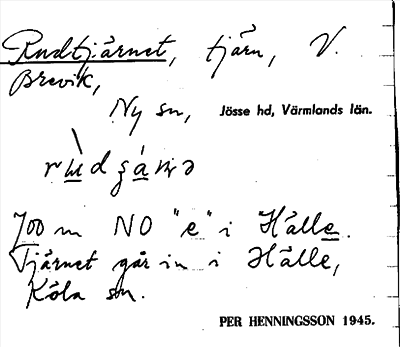 Rudtjärnet, tjärn, V.
Brevik,
Ny sn, Jösse hd, Värmlands län.
700 m NO "e" i Hälle.
Tjärnet går in i Hälle,
Köla sn.
PER HENNINGSSON 1945.